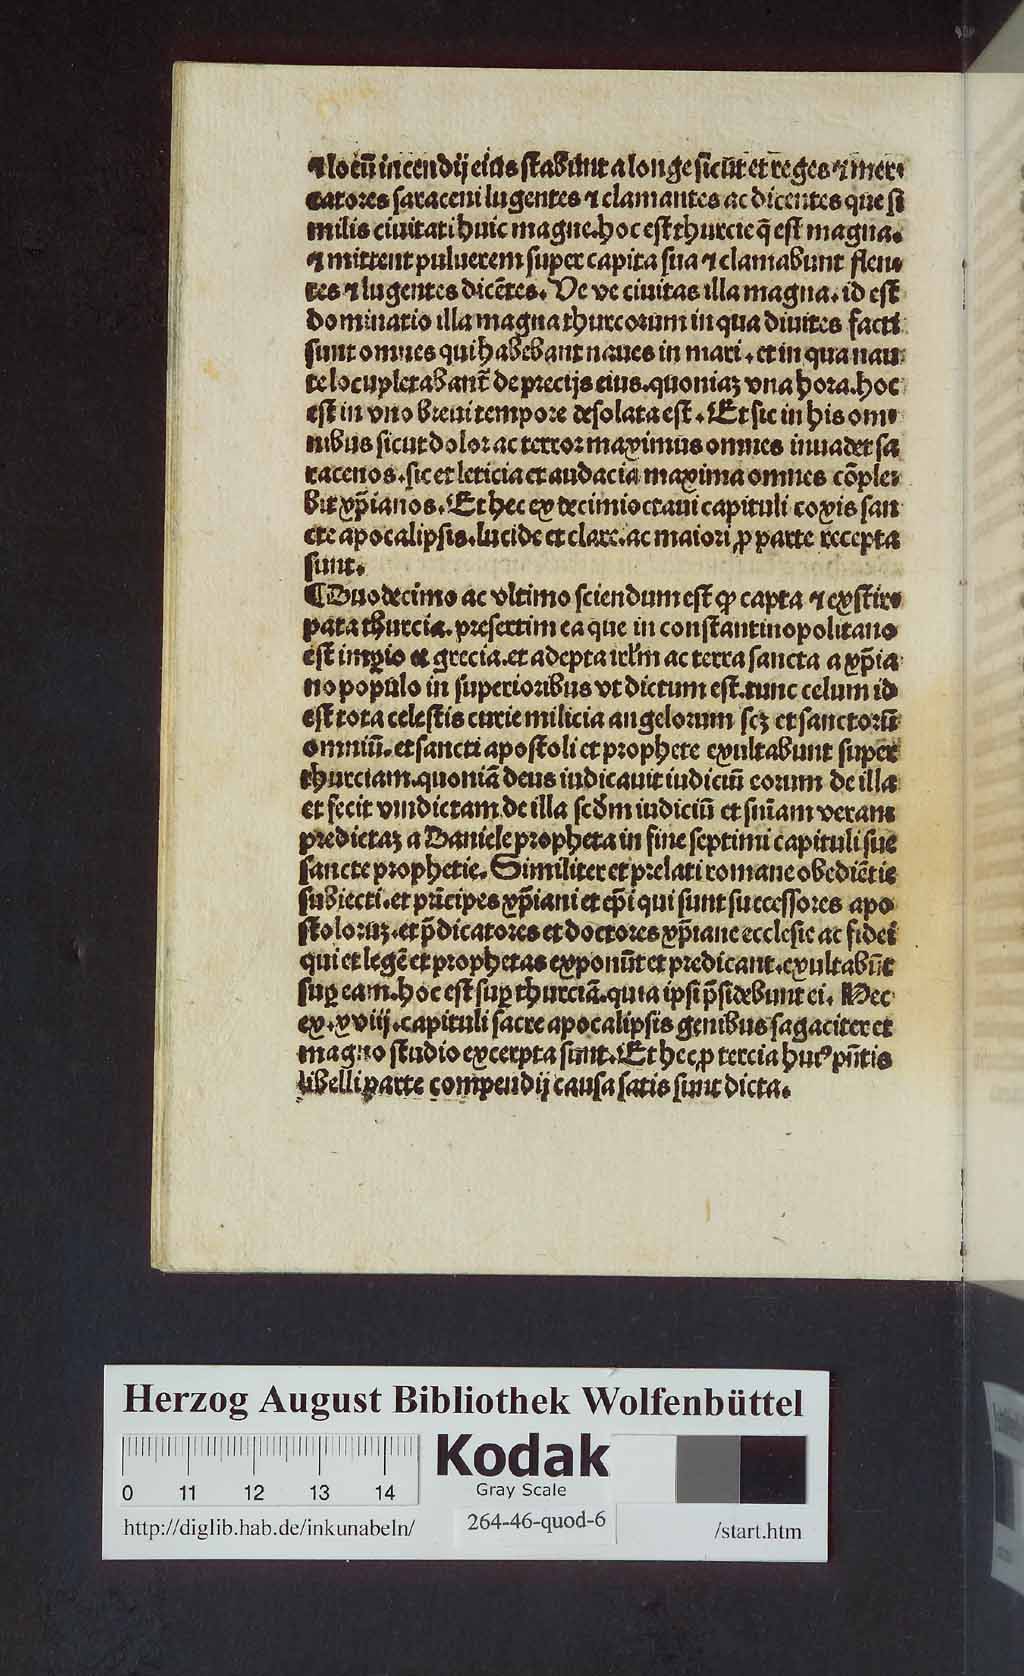 ⁊ locū incendij eius stabunt a longe sicut et reges ⁊ mer⸗
catores saraceni lugentes ⁊ clamantes ac dicentes que si
milis ciuitati huic magne. hoc est thurcie q̄ est magna.
⁊ mittent puluerem super capita sua ⁊ clamabunt flen⸗
tes ⁊ lugentes dicētes. Ve ve ciuitas illa magna. id est
dominatio illa magna thurcorum in qua diuites facti
sunt omnes qui habebant naues in mari. et in qua nau
te locupletabant̄ de precijs eius. quoniaꝫ vna hora. hoc
est in vno breui tempore desolata est. Et sic in his om⸗
nibus sicut dolor ac terror maximus omnes inuadet sa
racenos. sic et leticia et audacia maxima omnes cōple⸗
bit xp̄ianos. Et hec ex decimioctaui capituli toxis san
cte apocalipsis. lucide et clare. ac maiori ꝓ parte recepta
sunt.
⸿ Duodecimo ac vltimo sciendum est ꝙ capta ⁊ exstir⸗
pata thurcia. presertim ea que in constantinopolitano
est imꝑio et grecia. et adepta irl̄m ac terra sancta a xp̄ia
no populo in superioribus vt dictum est. tunc celum id
est tota celestis curie milicia angelorum scꝫ et sanctorū
omniū. et sancti apostoli et prophete exultabunt super
thurciam. quoniā deus iudicauit iudiciū eorum de illa
et fecit vindictam de illa scd̄m iudiciū et sn̄iam veram
predictaꝫ a Daniele propheta in fine septimi capituli sue
sancte prophetie. Similiter et prelati romane obediētie
subiecti. et prīcipes xp̄iani et ep̄i qui sunt successores apo
stoloruꝫ. et p̄dicatores et doctores xp̄iane ecclesie ac fidei
qui et legē et prophetas exponūt et predicant. exultabūt
suꝑ eam. hoc est suꝑ thurciā. quia ipsi p̄sidebunt ei. Hec
ex. xviij. capituli sacre apocalipsis gentibus sagaciter et
magno studio excerpta sunt. Et hec ꝓ tercia huiꝰ pn̄tis
libelli parte compendij causa satis sunt dicta.
Herzog August Bibliothek Wolfenbüttel
Kodak
Gray Scale
0 11 12 13 14
http://diglib.hab.de/inkunabeln/ 264-46-quod-6 /start.htm